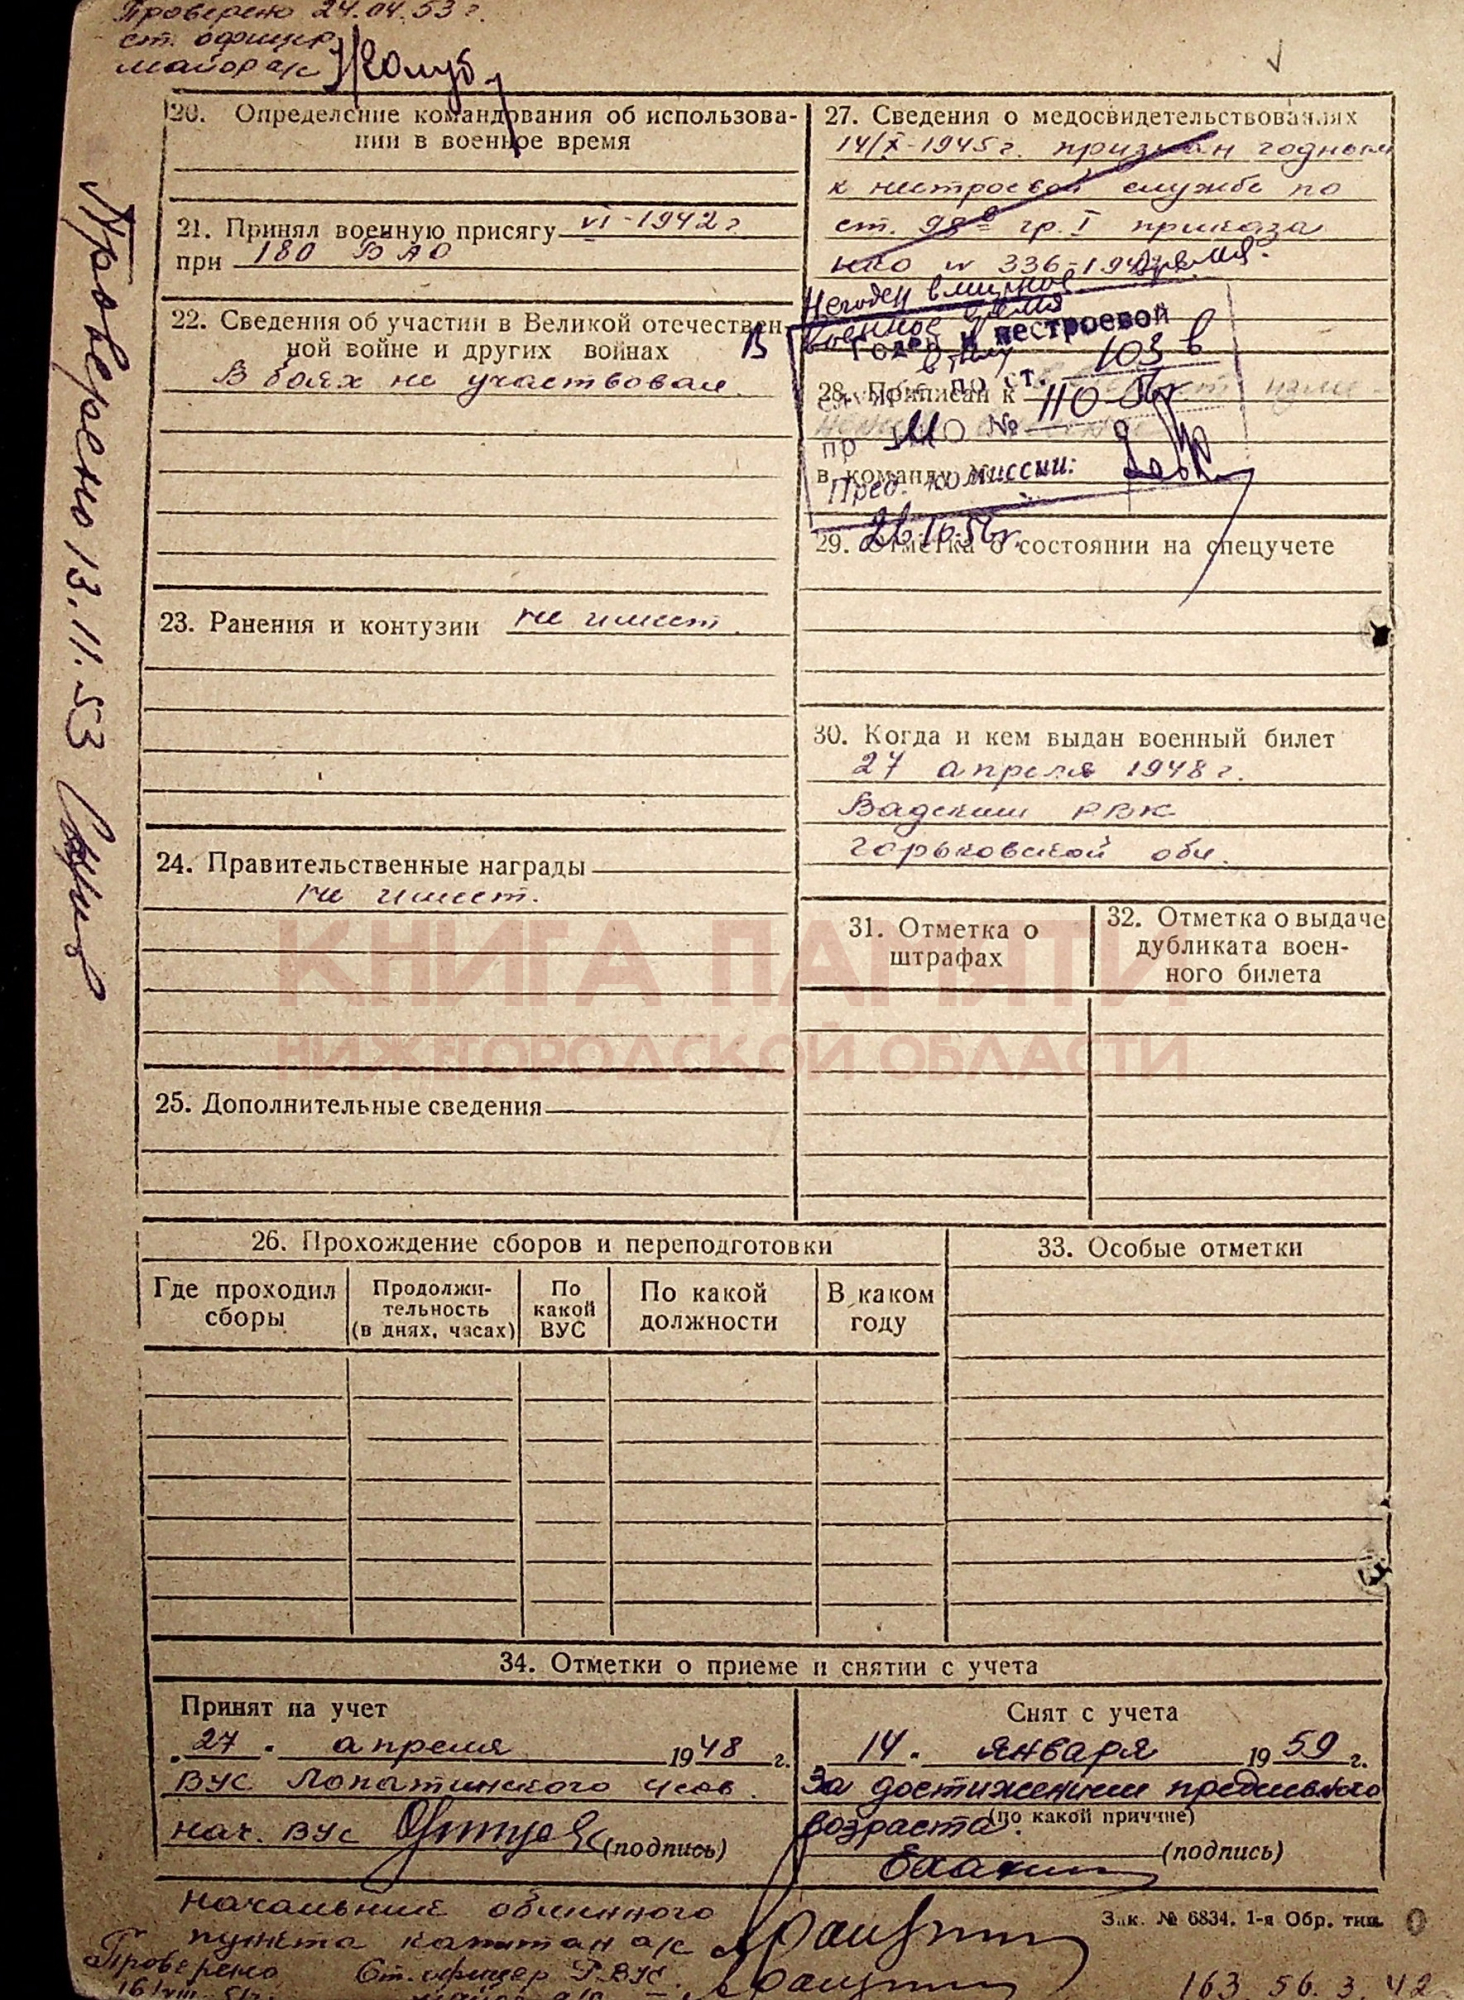 Проверено 24.04.53 г.
ст. офицер
майор а/с
20. Определение командования об использова-
нии в военное время
21. Принял военную присягу VI-1942 г
при 180 БАО
22. Сведения об участии в Великой отечествен-
ной войне и других войнах
В боях не участвовал.
23. Ранения и контузии не имеет.
24. Правительственные награды
не имеет.
25. Дополнительные сведения
27. Сведения о медосвидетельствованиях
14/X-1945 г. признан годным
к нестроевой службе по
ст. 98 гр. I приказа
НКО № 336-1942
Негоден в мирное время.
военное время
Годен к нестроевой
службе по ст. 103 в
пр МО № 110-
Пред. комиссии:
26.10.56г.
28. Приписан к
в команду №
29. Отметка о состоянии на спецучете
30. Когда и кем выдан военный билет
27 апреля 1948 г.
Вадским РВК
Горьковской обл.
31. Отметка о
штрафах
32. Отметка о выдаче
дубликата воен-
ного билета
Проверено 13.11.53
КНИГА ПАМЯТИ
НИЖЕГОРОДСКОЙ ОБЛАСТИ
26. Прохождение сборов и переподготовки
Где проходил
сборы
Продолжи-
тельность
(в днях, часах)
По
какой
ВУС
По какой
должности
В каком
году
33. Особые отметки
34. Отметки о приеме и снятии с учета
Принят на учет
„27" апреля 1948 г.
ВУС Лопатинского ч/сов.
нач. ВУС (подпись)
Снят с учета
14. января 1959 г.
За достижением предельного
возраста. (по какой причине)
(подпись)
Начальник облинного
пункта капитан а/с
Зак. № 6834. 1-я Обр. тип.
Проверено Ст. офицер РВУС.
163 56. 3. 42